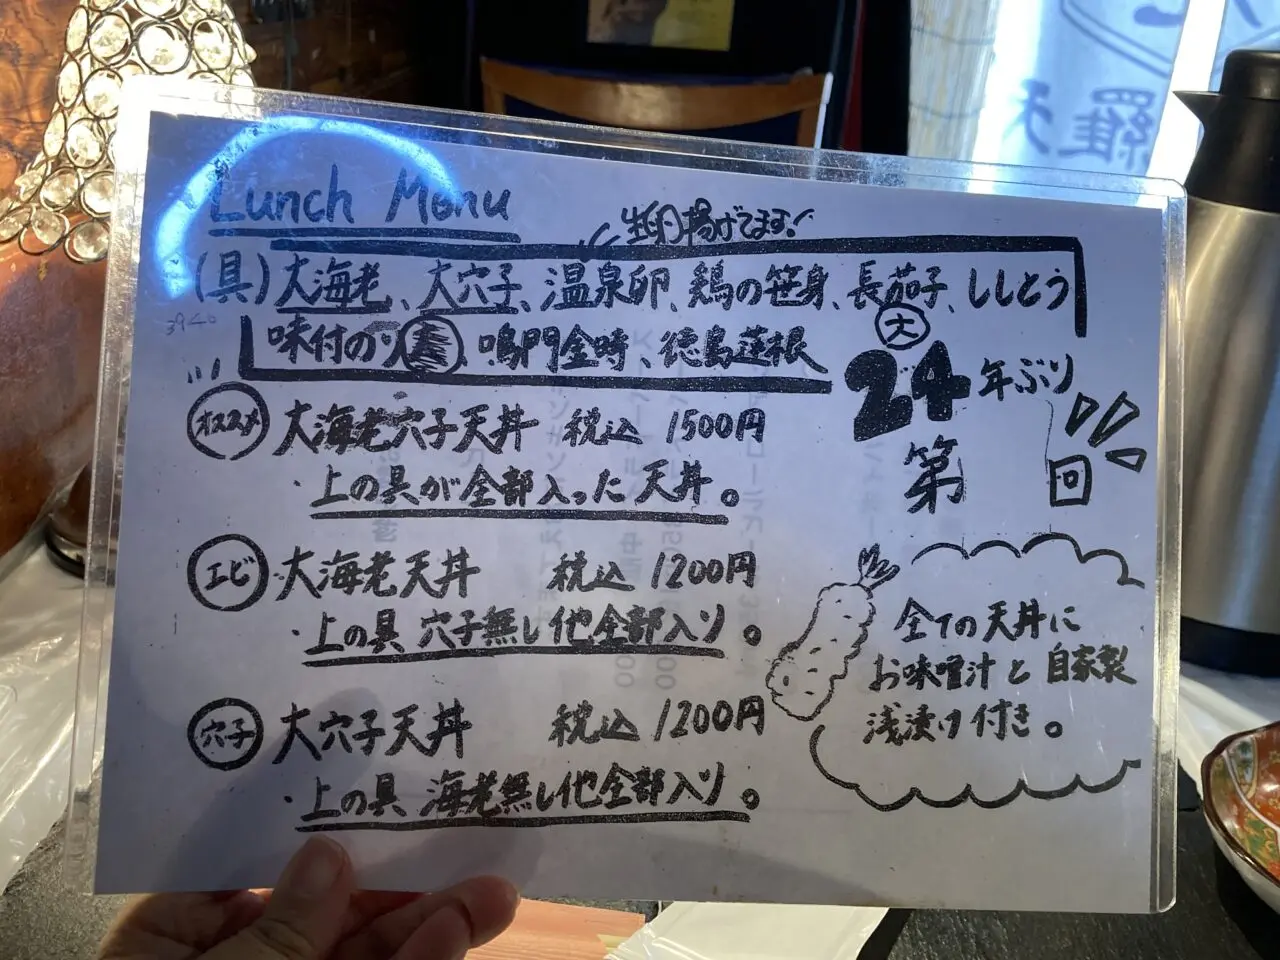 Lunch Menu
生卵揚げてます!
(具)大海老、大穴子、温泉卵、鶏の笹身、長茄子、ししとう
味付のり 鳴門金時、徳島蓮根
大
24年ぶり
第 回
オススメ 大海老穴子天丼 税込 1500円
・上の具が全部入った天丼。
エビ 大海老天丼 税込 1200円
・上の具 穴子無し他全部入り。
穴子 大穴子天丼 税込 1200円
・上の具 海老無し他全部入り。
全ての天丼に
お味噌汁と自家製
浅漬け付き。
羅